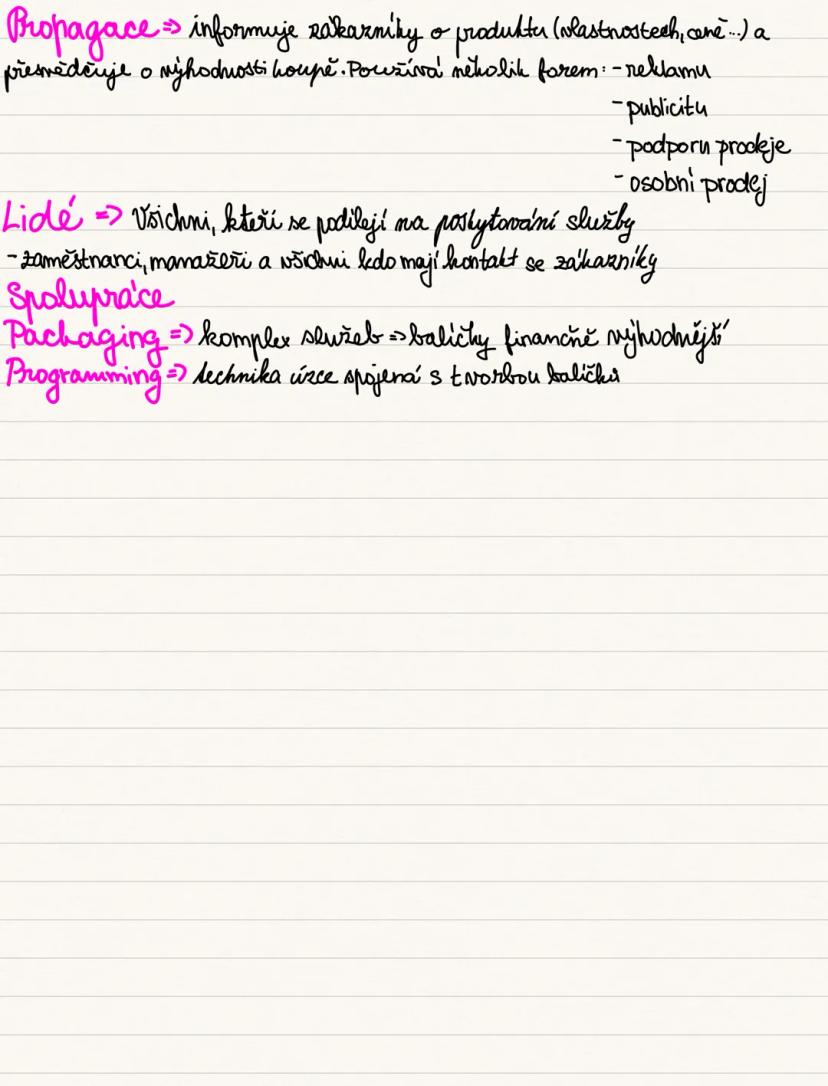 Propagace => informuje zákazníky o produktu (vlastnostech, ceně...) a
přesvědčuje o výhodnosti koupě. Používá několik forem: - reklamu
- publicitu
- podporu prodeje
- osobní prodej
Lidé => Všichni, kteří se podílejí na poskytování služby
- zaměstnanci, manažeři a všichni kdo mají kontakt se zákazníky
Spolupráce
Packaging => komplex služeb => balíčky finančně výhodnější
Programming => technika úzce spojená s tvorbou balíčků